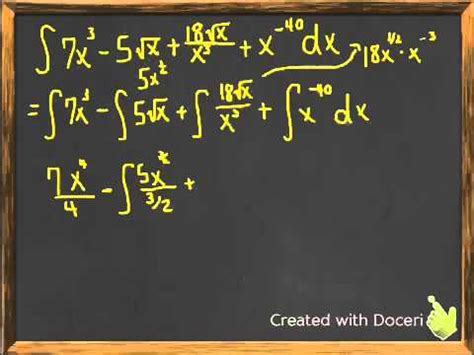 ∫ 7x³ − 5√x + 18√x/x³ + x⁻⁴⁰ dx → 18x^(1/2) · x⁻³
5x^½
= ∫7x³ − ∫5√x + ∫ 18√x/x³ + ∫x⁻⁴⁰ dx
7x⁴/4 − ∫ 5x/(3/2) +
Created with Doceri